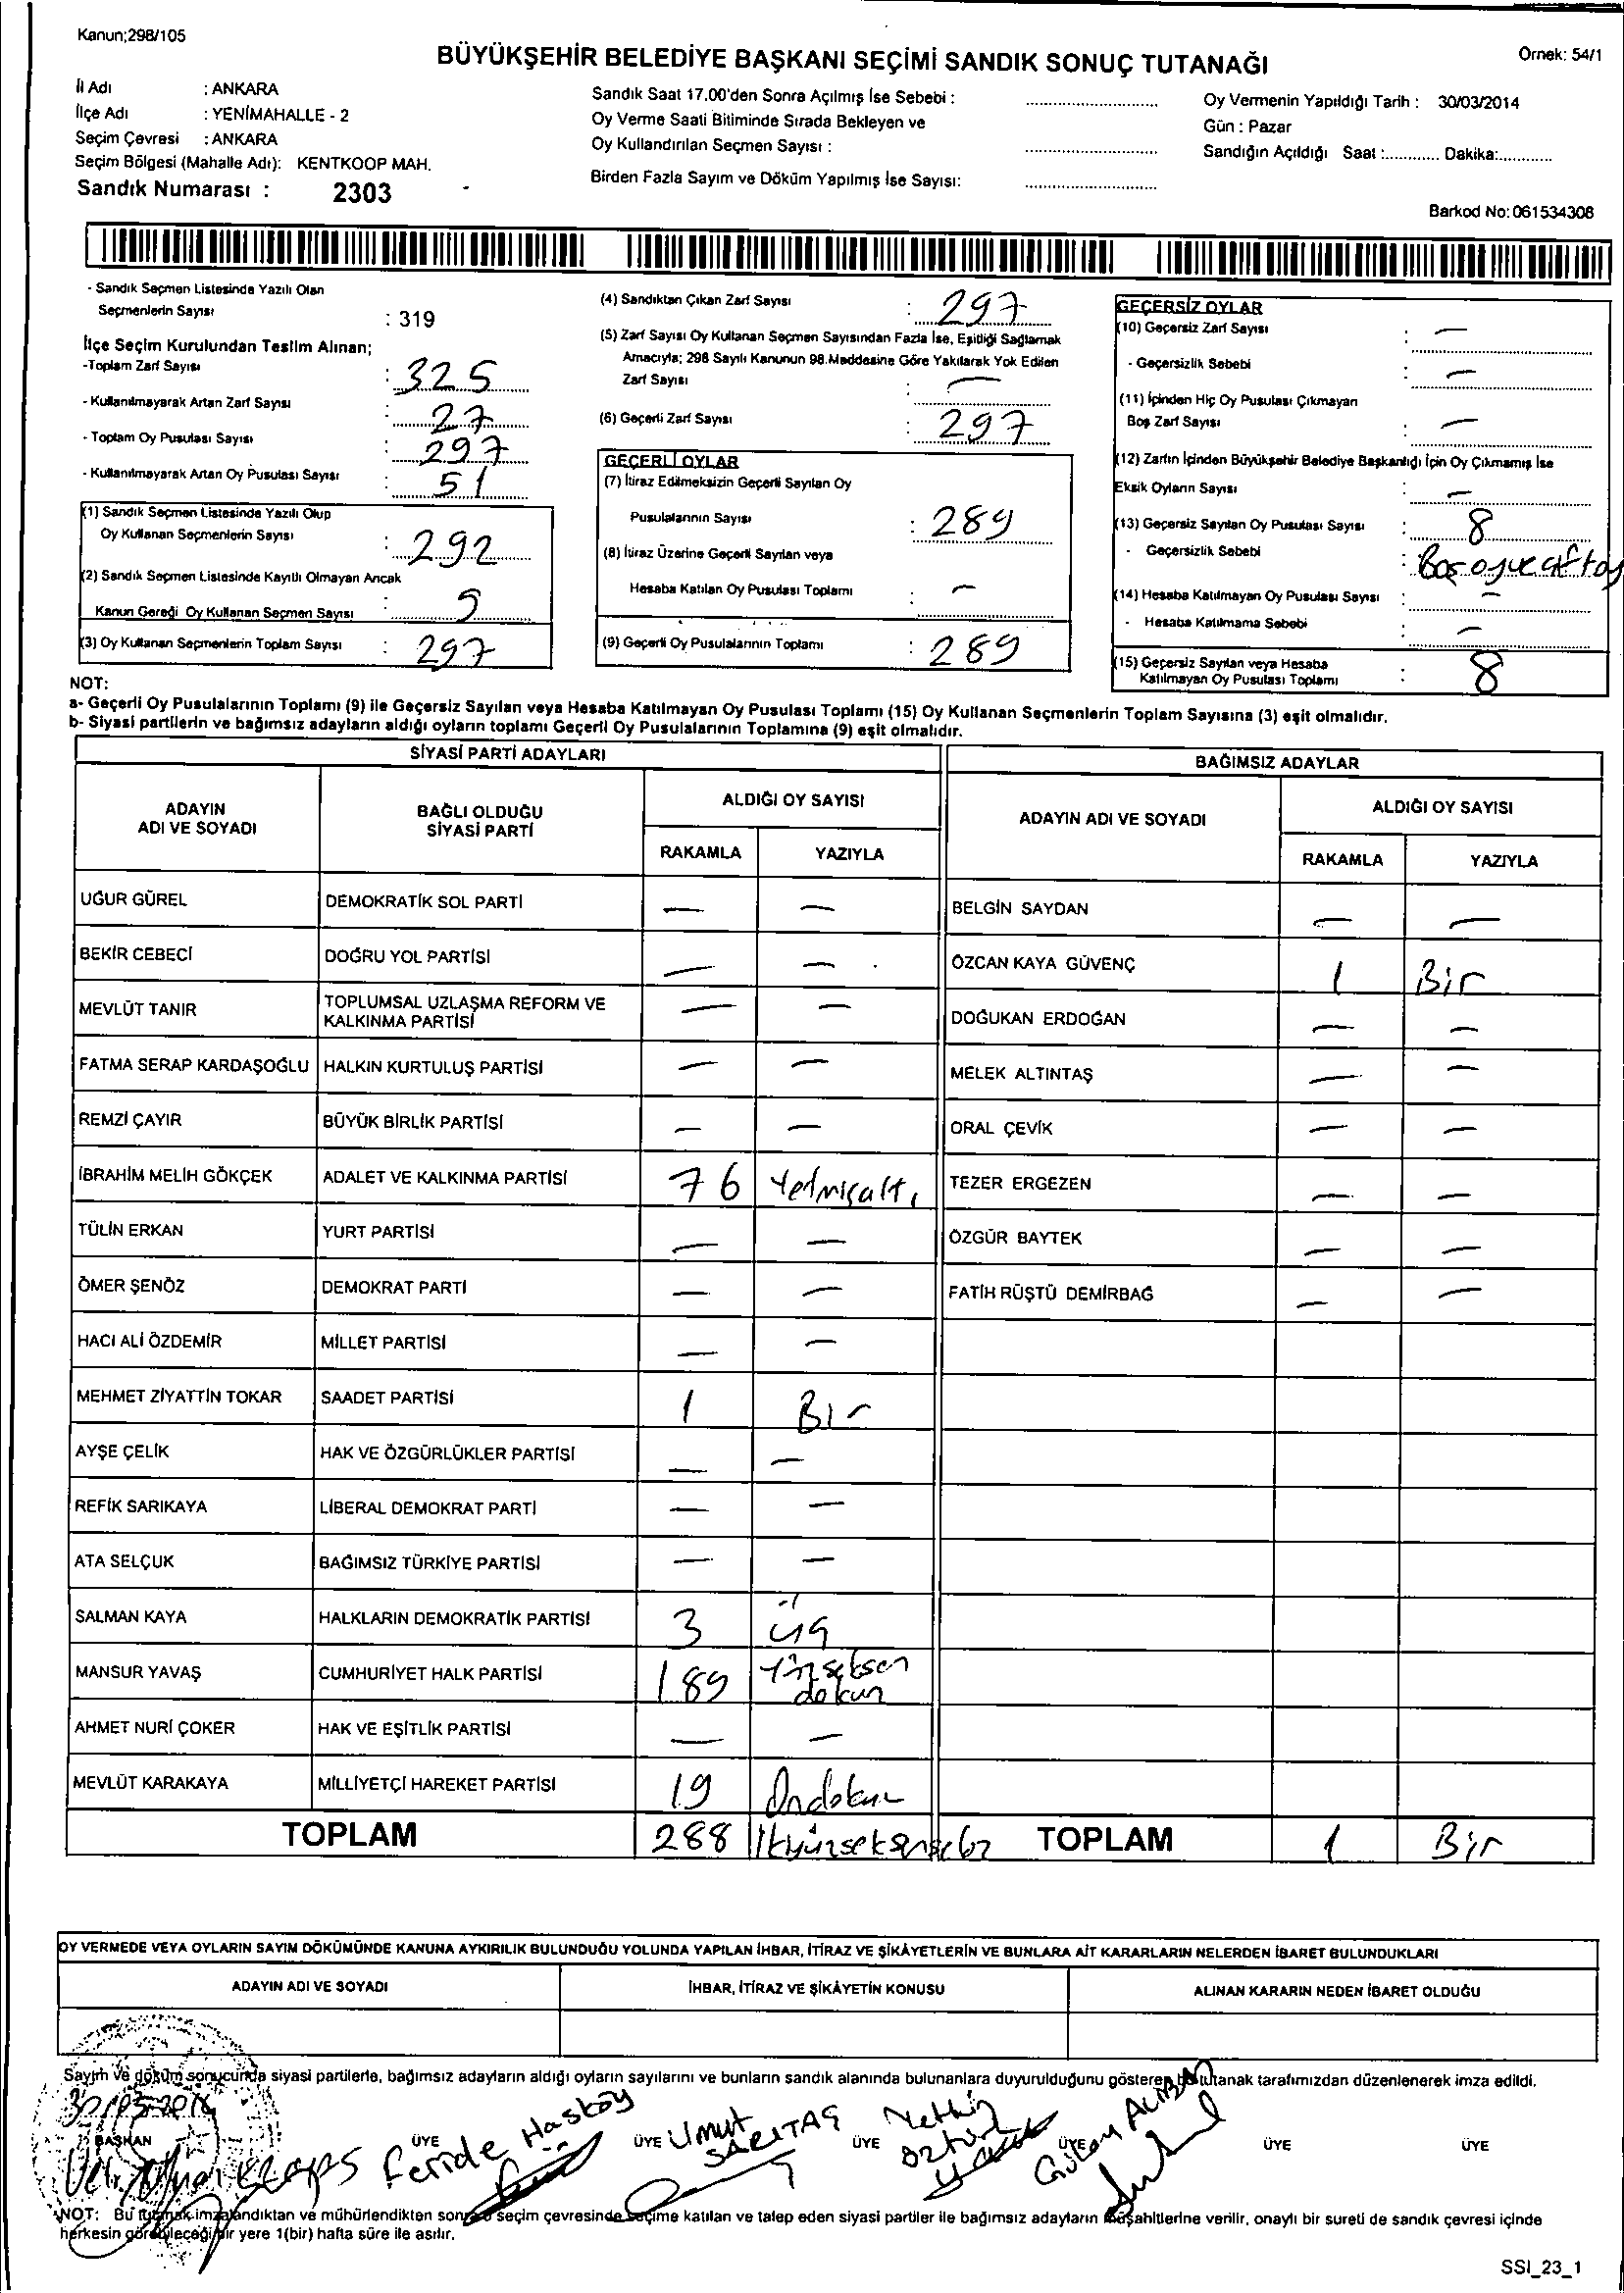 Kanun;298/105
BÜYÜKŞEHİR BELEDİYE BAŞKANI SEÇİMİ SANDIK SONUÇ TUTANAĞI
Örnek: 54/1
İl Adı : ANKARA
İlçe Adı : YENİMAHALLE - 2
Seçim Çevresi : ANKARA
Seçim Bölgesi (Mahalle Adı): KENTKOOP MAH.
Sandık Numarası : 2303
Sandık Saat 17.00'den Sonra Açılmış İse Sebebi :
Oy Verme Saati Bitiminde Sırada Bekleyen ve
Oy Kullandırılan Seçmen Sayısı :
Birden Fazla Sayım ve Döküm Yapılmış İse Sayısı:
Oy Vermenin Yapıldığı Tarih : 30/03/2014
Gün : Pazar
Sandığın Açıldığı Saat :............ Dakika:............
Barkod No: 061534308
- Sandık Seçmen Listesinde Yazılı Olan
Seçmenlerin Sayısı : 319
İlçe Seçim Kurulundan Teslim Alınan;
-Toplam Zarf Sayısı : 325
- Kullanılmayarak Artan Zarf Sayısı : 27
- Toplam Oy Pusulası Sayısı : 297
- Kullanılmayarak Artan Oy Pusulası Sayısı : 51
(1) Sandık Seçmen Listesinde Yazılı Olup
Oy Kullanan Seçmenlerin Sayısı : 292
(2) Sandık Seçmen Listesinde Kayıtlı Olmayan Ancak
Kanun Gereği Oy Kullanan Seçmen Sayısı : 5
(3) Oy Kullanan Seçmenlerin Toplam Sayısı : 297
(4) Sandıktan Çıkan Zarf Sayısı : 297
(5) Zarf Sayısı Oy Kullanan Seçmen Sayısından Fazla İse, Eşitliği Sağlamak
Amacıyla; 298 Sayılı Kanunun 98.Maddesine Göre Yakılarak Yok Edilen
Zarf Sayısı : —
(6) Geçerli Zarf Sayısı : 297
GEÇERLİ OYLAR
(7) İtiraz Edilmeksizin Geçerli Sayılan Oy
Pusulalarının Sayısı : 289
(8) İtiraz Üzerine Geçerli Sayılan veya
Hesaba Katılan Oy Pusulası Toplamı : —
(9) Geçerli Oy Pusulalarının Toplamı : 289
GEÇERSİZ OYLAR
(10) Geçersiz Zarf Sayısı : —
- Geçersizlik Sebebi : —
(11) İçinden Hiç Oy Pusulası Çıkmayan
Boş Zarf Sayısı : —
(12) Zarfın İçinden Büyükşehir Belediye Başkanlığı İçin Oy Çıkmamış İse
Eksik Oyların Sayısı : —
(13) Geçersiz Sayılan Oy Pusulası Sayısı : 8
- Geçersizlik Sebebi :
(14) Hesaba Katılmayan Oy Pusulası Sayısı : —
- Hesaba Katılmama Sebebi : —
(15) Geçersiz Sayılan veya Hesaba
Katılmayan Oy Pusulası Toplamı : 8
NOT:
a- Geçerli Oy Pusulalarının Toplamı (9) ile Geçersiz Sayılan veya Hesaba Katılmayan Oy Pusulası Toplamı (15) Oy Kullanan Seçmenlerin Toplam Sayısına (3) eşit olmalıdır.
b- Siyasi partilerin ve bağımsız adayların aldığı oyların toplamı Geçerli Oy Pusulalarının Toplamına (9) eşit olmalıdır.
SİYASİ PARTİ ADAYLARI
ADAYIN ADI VE SOYADI BAĞLI OLDUĞU SİYASİ PARTİ ALDIĞI OY SAYISI
RAKAMLA YAZIYLA
UĞUR GÜREL DEMOKRATİK SOL PARTİ — —
BEKİR CEBECİ DOĞRU YOL PARTİSİ — —
MEVLÜT TANIR TOPLUMSAL UZLAŞMA REFORM VE KALKINMA PARTİSİ — —
FATMA SERAP KARDAŞOĞLU HALKIN KURTULUŞ PARTİSİ — —
REMZİ ÇAYIR BÜYÜK BİRLİK PARTİSİ — —
İBRAHİM MELİH GÖKÇEK ADALET VE KALKINMA PARTİSİ 76 Yetmişaltı
TÜLİN ERKAN YURT PARTİSİ — —
ÖMER ŞENÖZ DEMOKRAT PARTİ — —
HACI ALİ ÖZDEMİR MİLLET PARTİSİ — —
MEHMET ZİYATTİN TOKAR SAADET PARTİSİ 1 Bir
AYŞE ÇELİK HAK VE ÖZGÜRLÜKLER PARTİSİ — —
REFİK SARIKAYA LİBERAL DEMOKRAT PARTİ — —
ATA SELÇUK BAĞIMSIZ TÜRKİYE PARTİSİ — —
SALMAN KAYA HALKLARIN DEMOKRATİK PARTİSİ 3 üç
MANSUR YAVAŞ CUMHURİYET HALK PARTİSİ 189 Yüzseksen dokuz
AHMET NURİ ÇOKER HAK VE EŞİTLİK PARTİSİ — —
MEVLÜT KARAKAYA MİLLİYETÇİ HAREKET PARTİSİ 19 Ondokuz
TOPLAM 288 İkiyüzseksensekiz
BAĞIMSIZ ADAYLAR
ADAYIN ADI VE SOYADI ALDIĞI OY SAYISI
RAKAMLA YAZIYLA
BELGİN SAYDAN — —
ÖZCAN KAYA GÜVENÇ 1 Bir
DOĞUKAN ERDOĞAN — —
MELEK ALTINTAŞ — —
ORAL ÇEVİK — —
TEZER ERGEZEN — —
ÖZGÜR BAYTEK — —
FATİH RÜŞTÜ DEMİRBAĞ — —
TOPLAM 1 Bir
OY VERMEDE VEYA OYLARIN SAYIM DÖKÜMÜNDE KANUNA AYKIRILIK BULUNDUĞU YOLUNDA YAPILAN İHBAR, İTİRAZ VE ŞİKÂYETLERİN VE BUNLARA AİT KARARLARIN NELERDEN İBARET BULUNDUKLARI
ADAYIN ADI VE SOYADI İHBAR, İTİRAZ VE ŞİKÂYETİN KONUSU ALINAN KARARIN NEDEN İBARET OLDUĞU
Sayım ve döküm sonucunda siyasi partilerle, bağımsız adayların aldığı oyların sayılarını ve bunların sandık alanında bulunanlara duyurulduğunu gösteren bu tutanak tarafımızdan düzenlenerek imza edildi.
30/03/2014
BAŞKAN ÜYE ÜYE ÜYE ÜYE ÜYE ÜYE
Feride Hasköy
Umut SARITAŞ
Öztürk
NOT: Bu tutanak imzalandıktan ve mühürlendikten sonra seçim çevresinde seçime katılan ve talep eden siyasi partiler ile bağımsız adayların müşahitlerine verilir, onaylı bir sureti de sandık çevresi içinde
herkesin görebileceği bir yere 1(bir) hafta süre ile asılır.
SSI_23_1